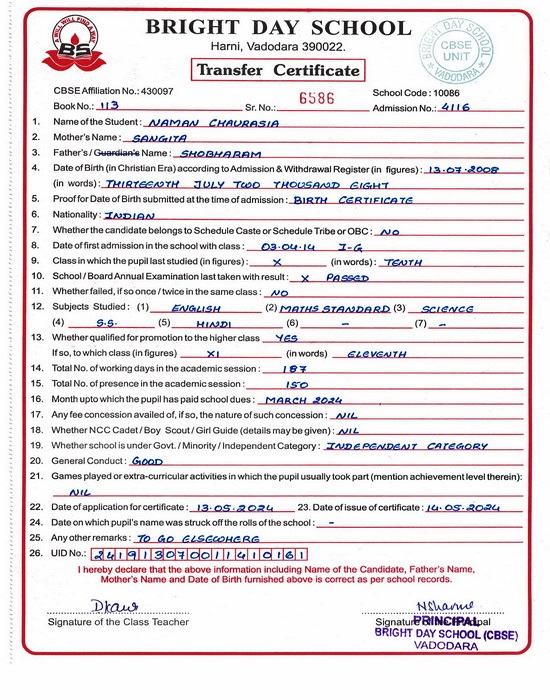 A WILL WILL FIND A WAY
BS
BRIGHT DAY SCHOOL
Harni, Vadodara 390022.
BRIGHT DAY SCHOOL
CBSE
UNIT
VADODARA
Transfer Certificate
CBSE Affiliation No.: 430097 School Code : 10086
Book No.: 113 Sr. No.: 6586 Admission No.: 4116
1. Name of the Student : NAMAN CHAURASIA
2. Mother's Name : SANGITA
3. Father's / Guardian's Name : SHOBHARAM
4. Date of Birth (in Christian Era) according to Admission & Withdrawal Register (in figures) : 13.07.2008
(in words) : THIRTEENTH JULY TWO THOUSAND EIGHT
5. Proof for Date of Birth submitted at the time of admission : BIRTH CERTIFICATE
6. Nationality : INDIAN
7. Whether the candidate belongs to Schedule Caste or Schedule Tribe or OBC : NO
8. Date of first admission in the school with class : 03.04.14 I-G
9. Class in which the pupil last studied (in figures) : X (in words) : TENTH
10. School / Board Annual Examination last taken with result : X PASSED
11. Whether failed, if so once / twice in the same class : NO
12. Subjects Studied : (1) ENGLISH (2) MATHS STANDARD (3) SCIENCE
(4) S.S. (5) HINDI (6) - (7) -
13. Whether qualified for promotion to the higher class YES
If so, to which class (in figures) XI (in words) ELEVENTH
14. Total No. of working days in the academic session : 187
15. Total No. of presence in the academic session : 150
16. Month upto which the pupil has paid school dues : MARCH 2024
17. Any fee concession availed of, if so, the nature of such concession : NIL
18. Whether NCC Cadet / Boy Scout / Girl Guide (details may be given) : NIL
19. Whether school is under Govt. / Minority / Independent Category : INDEPENDENT CATEGORY
20. General Conduct : GOOD
21. Games played or extra-curricular activities in which the pupil usually took part (mention achievement level therein) :
NIL
22. Date of application for certificate : 13.05.2024 23. Date of issue of certificate : 14.05.2024
24. Date on which pupil's name was struck off the rolls of the school : -
25. Any other remarks : TO GO ELSEWHERE
26. UID No.: 241913070011410161
I hereby declare that the above information including Name of the Candidate, Father's Name,
Mother's Name and Date of Birth furnished above is correct as per school records.
Signature of the Class Teacher Signature
PRINCIPAL
BRIGHT DAY SCHOOL (CBSE)
VADODARA